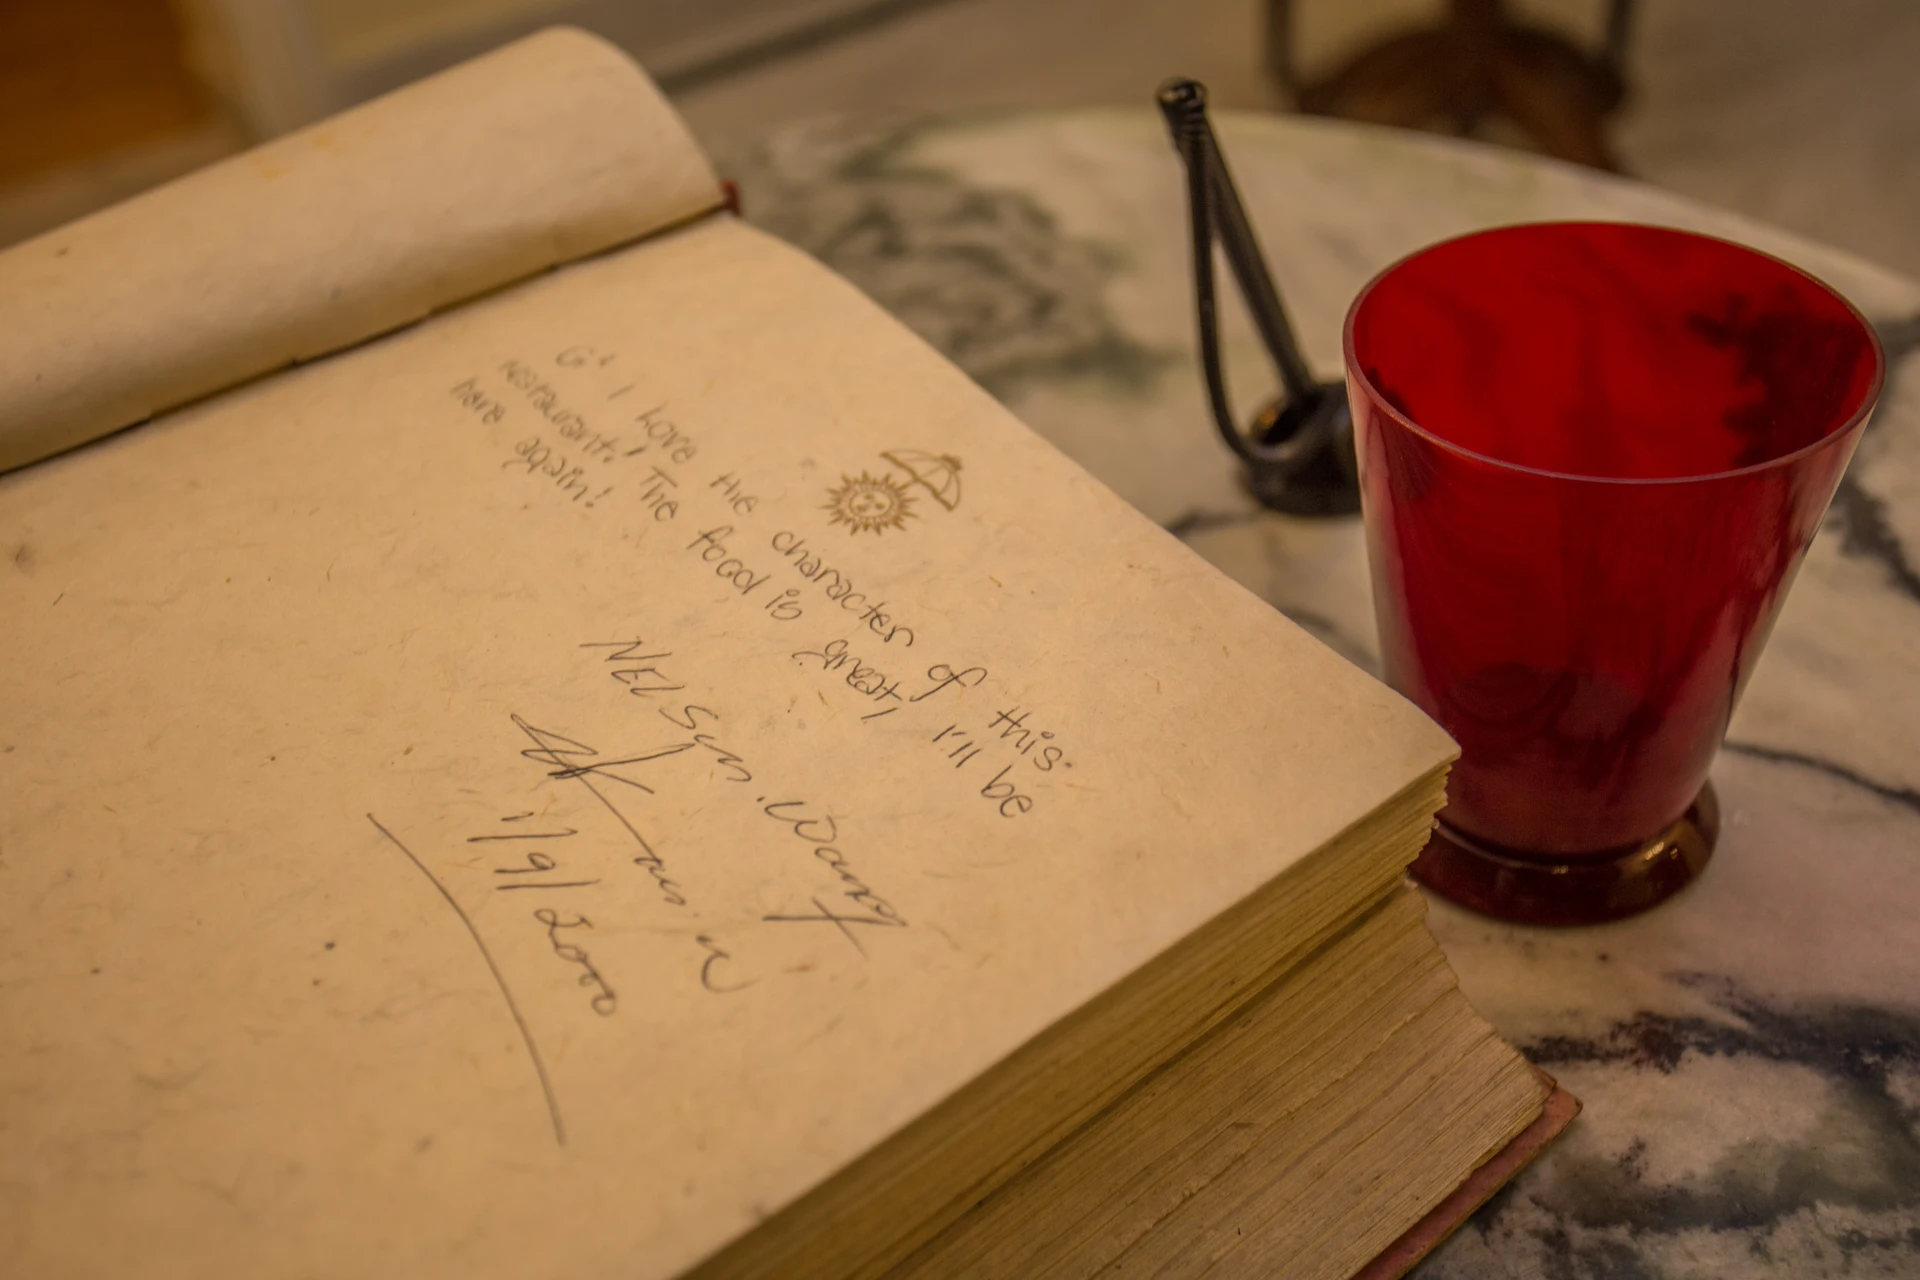 G' I love the character of this
restaurant! The food is great, I'll be
here again!
NELSON. Wang
1/9/2000